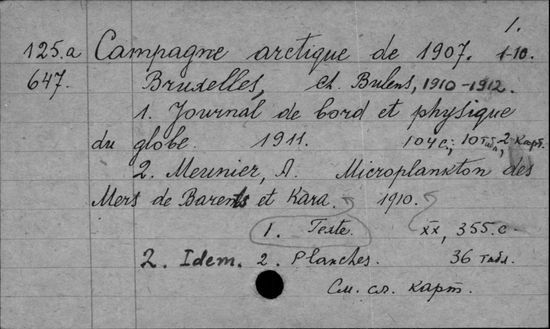 1.
125.a Campagne arctique de 1907. 1-10.
647. Bruxelles, Ch. Bulens, 1910-1912.
1. Journal de bord et physique
du globe. 1911. 104 с.; 10 табл., 2 карт.
2. Meunier, A. Microplankton des
Mers de Barents et Kara. 1910.
1. Texte. XX, 355. с.
2. Idem. 2. Planches. 36 табл.
См. сл. карт.